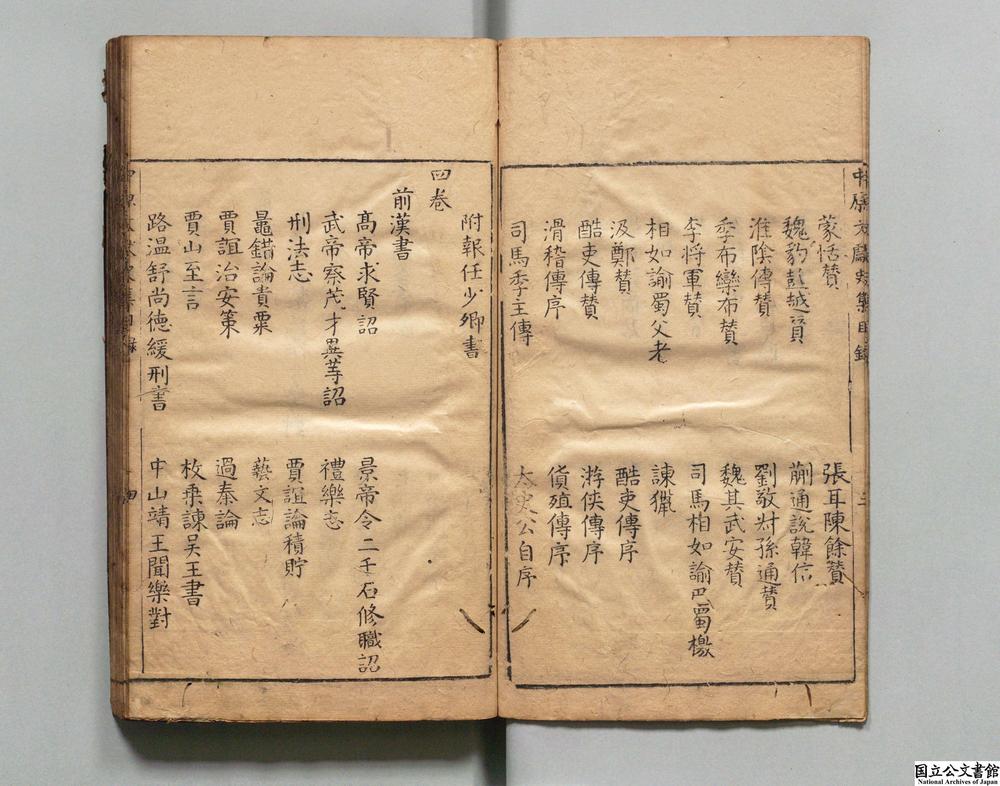 蒙恬贊
張耳陳餘贊
魏豹彭越贊
蒯通說韓信
淮陰傳贊
劉敬叔孫通贊
季布欒布贊
魏其武安贊
李將軍贊
司馬相如諭巴蜀檄
相如諭蜀父老
諫獵
汲鄭贊
酷吏傳序
酷吏傳贊
游俠傳序
滑稽傳序
貨殖傳序
司馬季主傳
太史公自序
附報任少卿書
四卷
前漢書
高帝求賢詔
景帝令二千石修職詔
武帝察茂才異等詔
禮樂志
刑法志
賈誼論積貯
鼂錯論貴粟
藝文志
賈誼治安策
過秦論
賈山至言
枚乘諫吳王書
路溫舒尚德緩刑書
中山靖王聞樂對
国立公文書館
National Archives of Japan